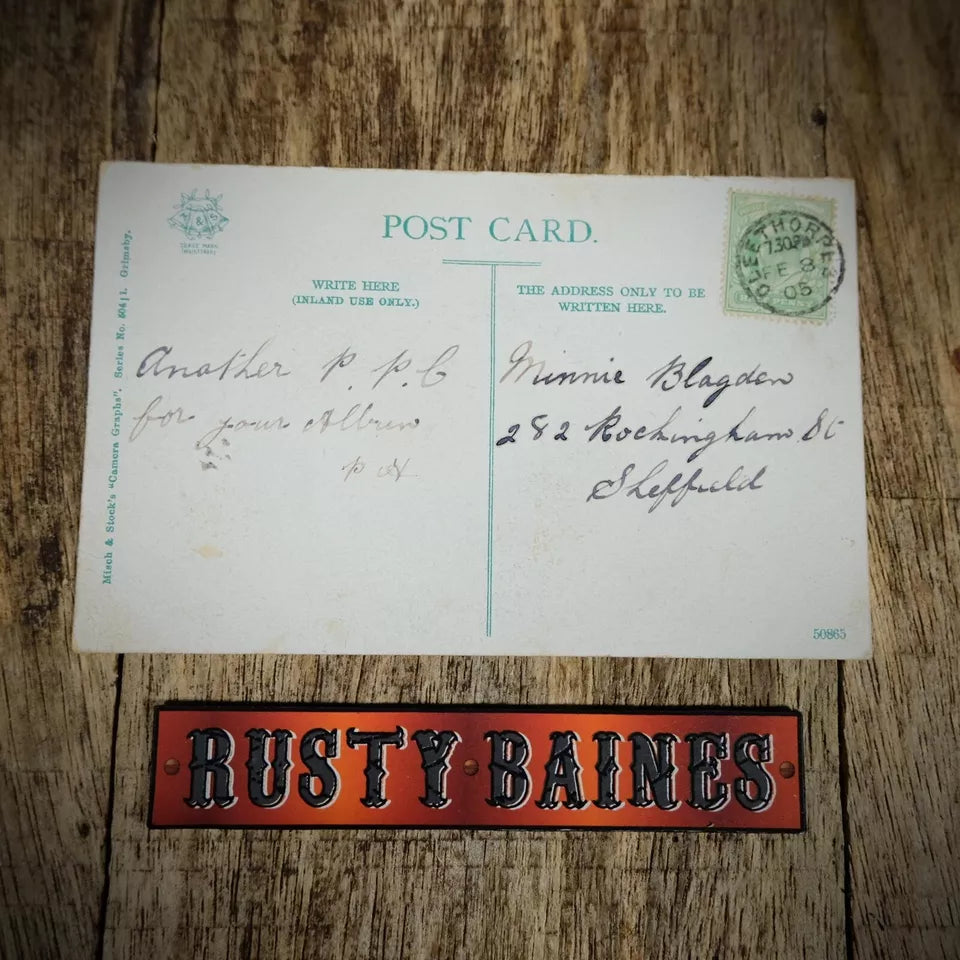 M & S
TRADE MARK
POST CARD.
Misch & Stock's "Camera Graphs". Series No. 504/1. Grimsby.
WRITE HERE
(INLAND USE ONLY.)
Another P. P. C
for your Album
P H
THE ADDRESS ONLY TO BE
WRITTEN HERE.
CLEETHORPES
7.30 PM
FE 8
05
Minnie Blagden
282 Rockingham St
Sheffield
50865
RUSTY BAINES